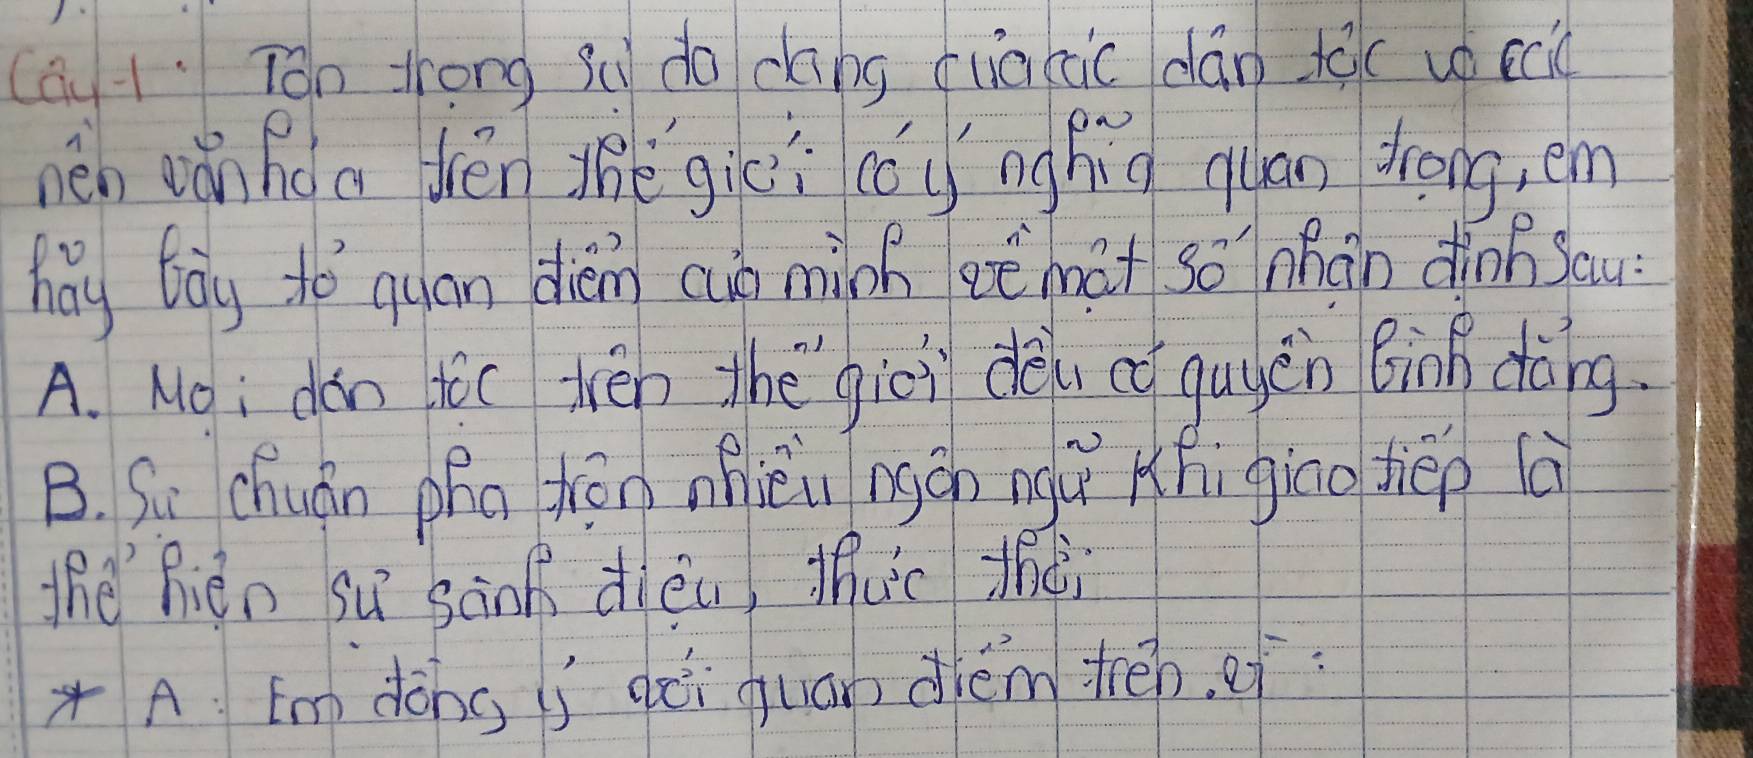 Câu 1: Tôn trọng sự đa dạng của các dân tộc và các
nền văn hóa trên thế giới có ý nghĩa quan trọng, em
hãy bày tỏ quan điểm của mình về một số nhận định sau:
A. Mọi dân tộc trên thế giới đều có quyền bình đẳng.
B. Sự chuẩn pha trộn nhiều ngôn ngữ khi giao tiếp là
thể hiện sự sành điệu, thức thời
* A: Em đồng ý với quan điểm trên. vì: